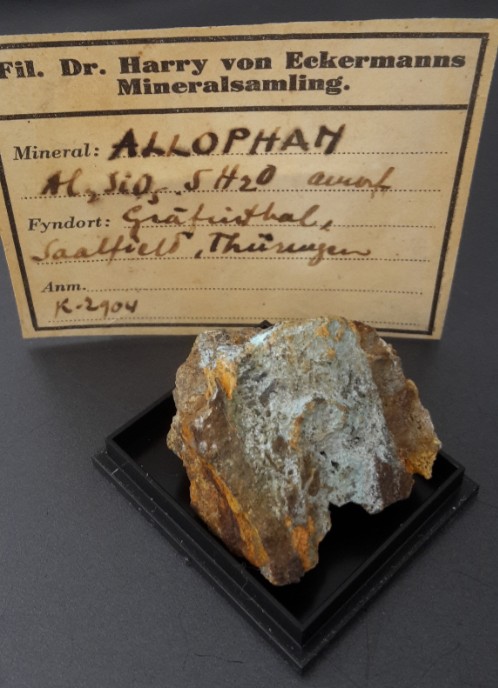 Fil. Dr. Harry von Eckermanns
Mineralsamling.
Mineral: ALLOPHAN
Al2SiO5 5H2O amorf
Fyndort: Gräfinthal,
Saalfield, Thüringen
Anm.
K-2904